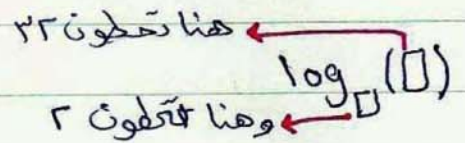 هنا تحطون ٣٢
log□(□)
وهنا تحطون ٢